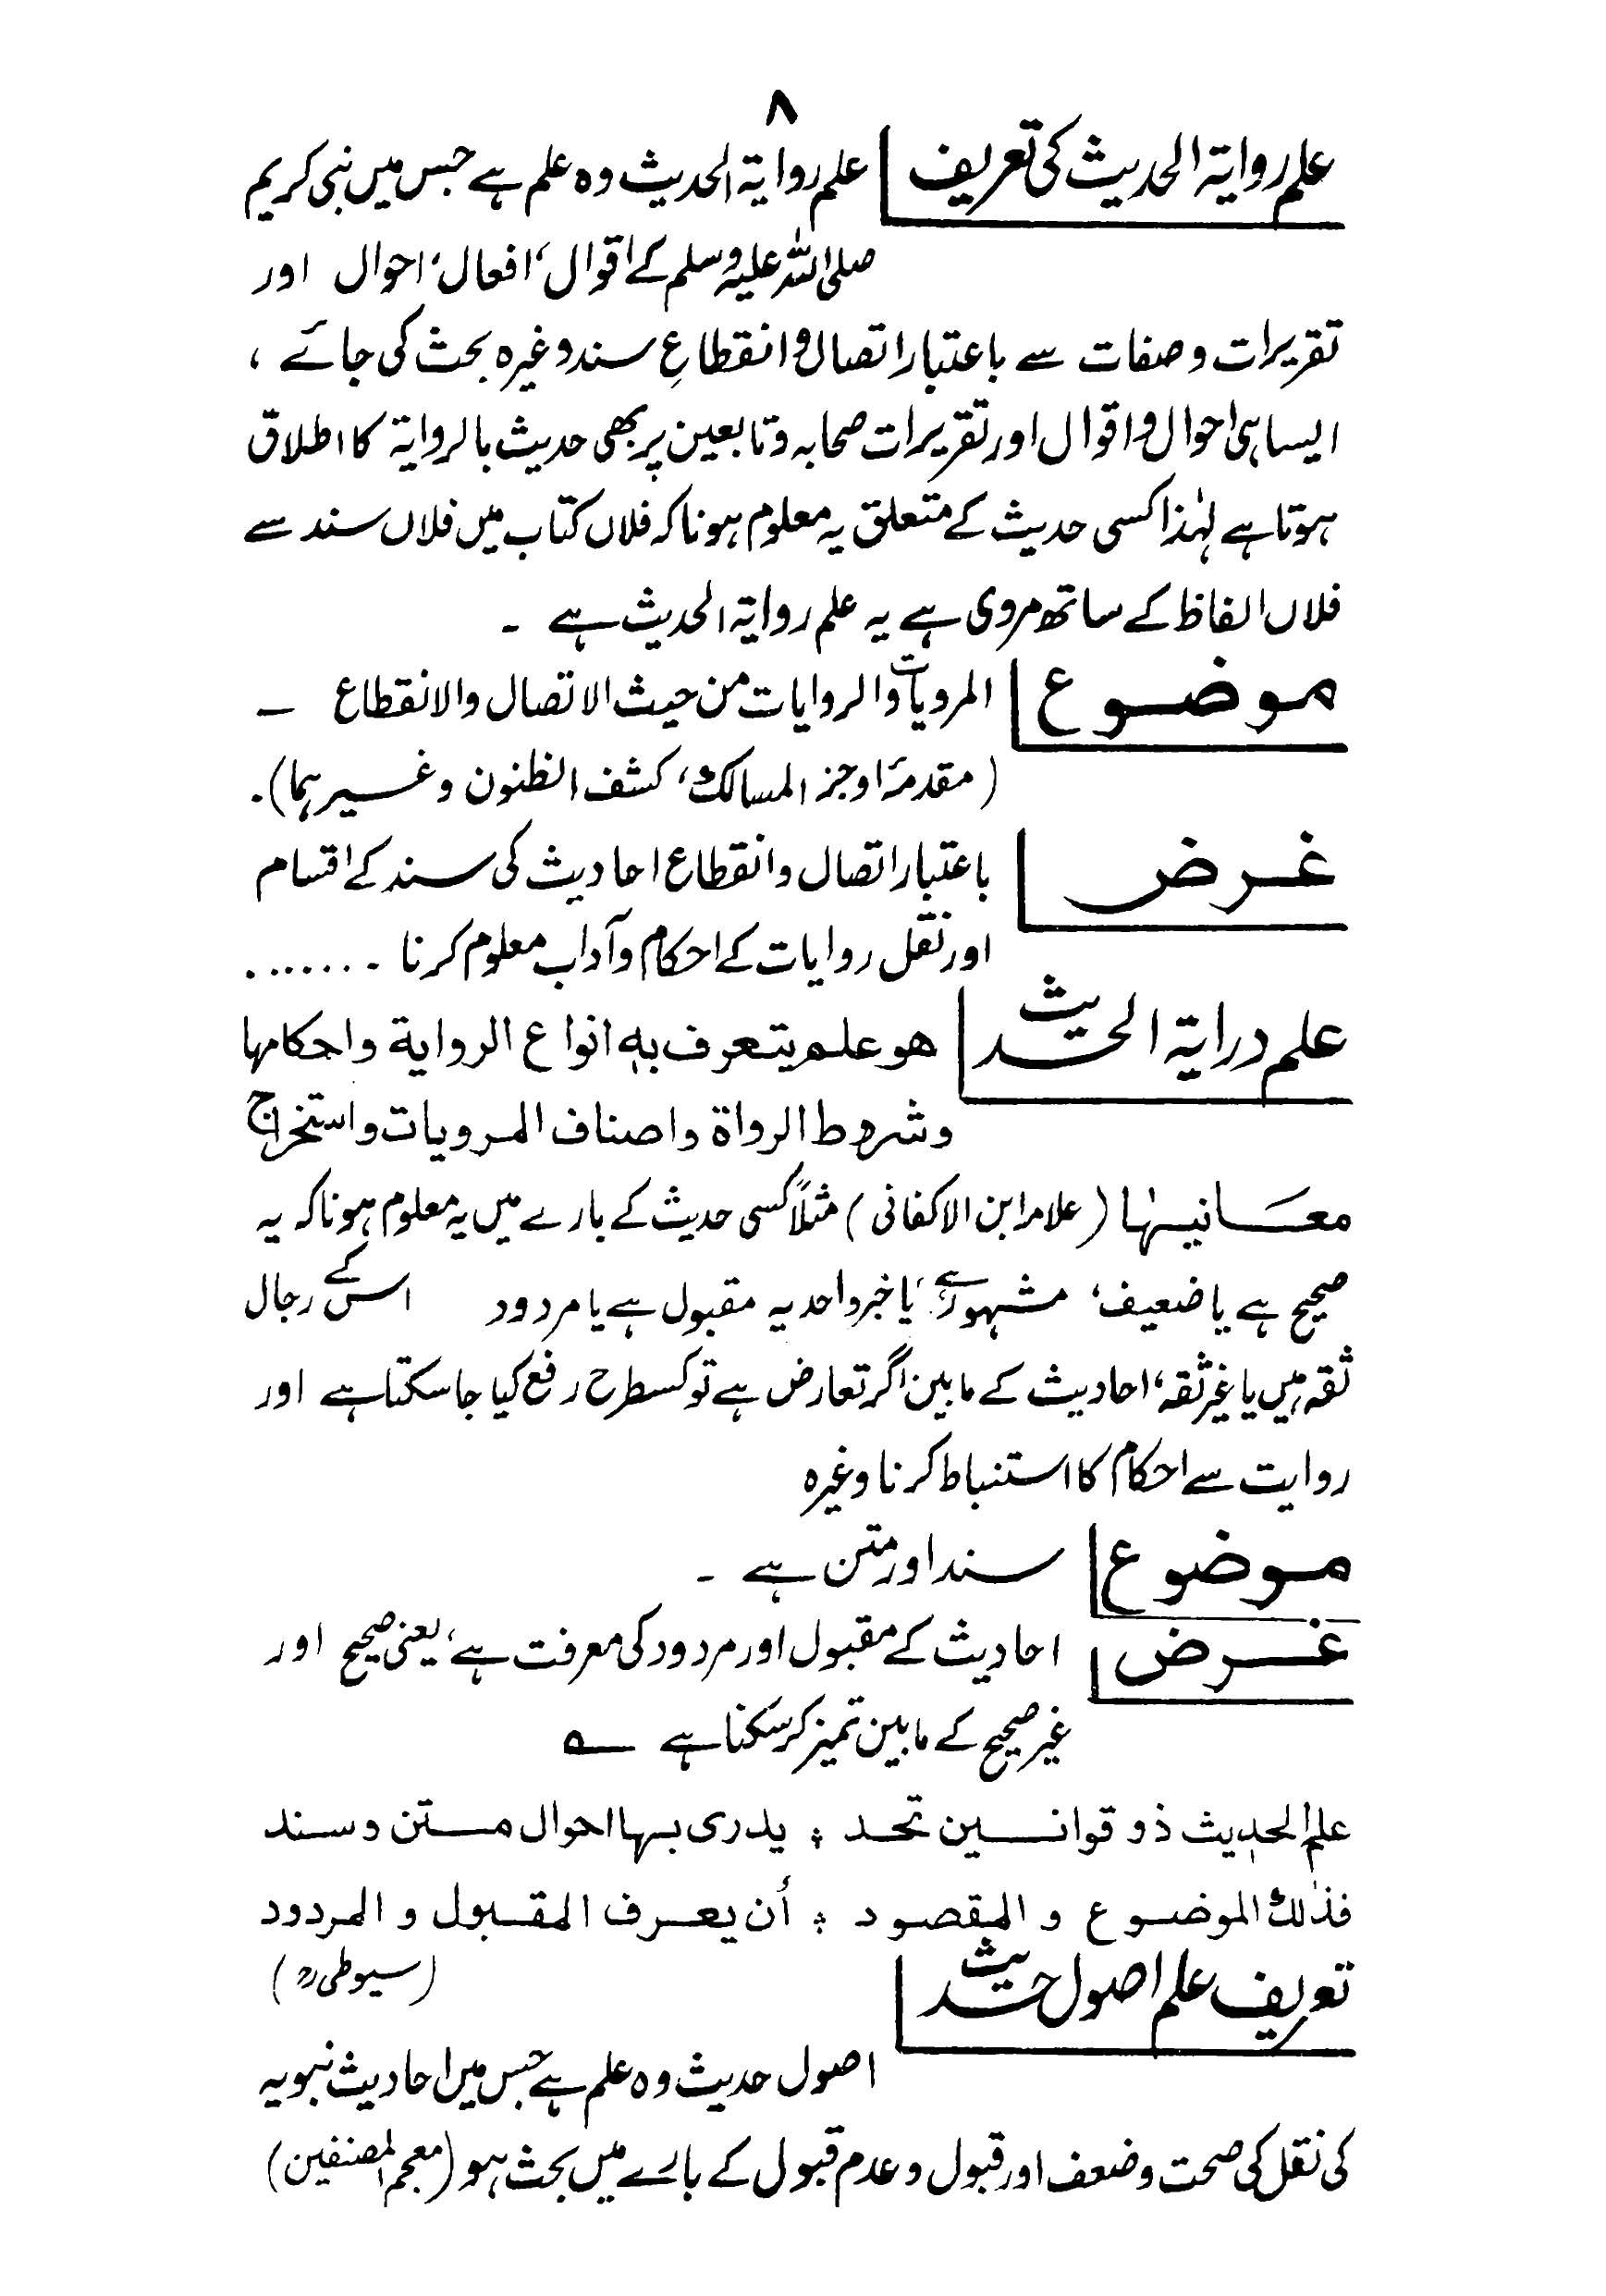 ۸
علم روایۃ الحدیث کی تعریف علم روایۃ الحدیث وہ علم ہے جس میں نبی کریم
صلی اللہ علیہ وسلم کے اقوال، افعال، احوال اور
تقریرات وصفات سے باعتبار اتصال وانقطاعِ سند وغیرہ بحث کی جائے ،
ایسا ہی احوال و اقوال اور تقریرات صحابہ و تابعین پر بھی حدیث بالروایۃ کا اطلاق
ہوتا ہے لہٰذا کسی حدیث کے متعلق یہ معلوم ہونا کہ فلاں کتاب میں فلاں سند سے
فلاں الفاظ کے ساتھ مروی ہے یہ علم روایۃ الحدیث ہے ۔
موضوع المرویات والروایات من حیث الاتصال والانقطاع ۔
(مقدمۂ اوجز المسالک، کشف الظنون وغیرہما)۔
غرض باعتبار اتصال وانقطاع احادیث کی سند کے اقسام
اور نقل روایات کے احکام وآداب معلوم کرنا ۔ ۔۔۔۔۔۔۔
علم درایۃ الحدیث هو علم يتعرف به انواع الرواية واحكامها
وشروط الرواة واصناف المرويات واستخراج
معانيها (علامہ ابن الاکفانی) مثلاً کسی حدیث کے بارے میں یہ معلوم ہونا کہ یہ
صحیح ہے یا ضعیف، مشہور ہے، یا خبر واحد یہ مقبول ہے یا مردود اس کے رجال
ثقہ ہیں یا غیر ثقہ، احادیث کے مابین اگر تعارض ہے تو کسطرح رفع کیا جاسکتا ہے اور
روایت سے احکام کا استنباط کرنا وغیرہ
موضوع سند اور متن ہے ۔
غرض احادیث کے مقبول اور مردود کی معرفت ہے، یعنی صحیح اور
غیر صحیح کے مابین تمیز کرسکنا ہے ؎
علم الحديث ذو قوانين تحد ؛ يدرى بها احوال متن وسند
فذلك الموضوع و المقصود ؛ أن يعرف المقبول و المردود
(سیوطیؒ)
تعریف علم اصول حدیث
اصول حدیث وہ علم ہے جس میں احادیث نبویہ
کی نقل کی صحت وضعف اور قبول و عدم قبول کے بارے میں بحث ہو (معجم المصنفین)